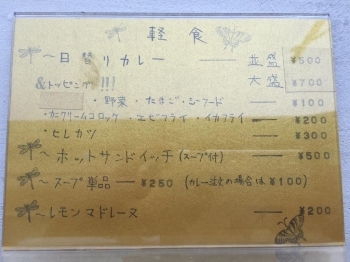 軽食
～日替りカレー ― 並盛 ¥500
&トッピング!!! 大盛 ¥700
・野菜・たまご・シーフード ― ¥100
・カニクリームコロッケ・エビフライ・イカフライ ― ¥200
・ヒレカツ ― ¥300
～ホットサンドイッチ(スープ付) ― ¥500
～スープ単品 ― ¥250 (カレー注文の場合は¥100)
～レモンマドレーヌ ― ¥200